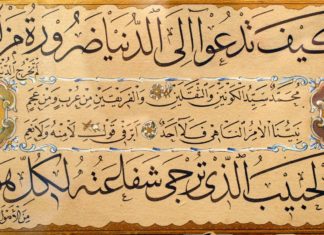 كيف تدعوا الى الدنيا ضرورة من
محمد سيد الكونين والثقلين والفريقين من عرب ومن عجم
نبينا الآمر الناهي فلا احد ابر في قول لا منه ولا نعم
لحبيب الذي ترجى شفاعته لكل هو
من الاهوال